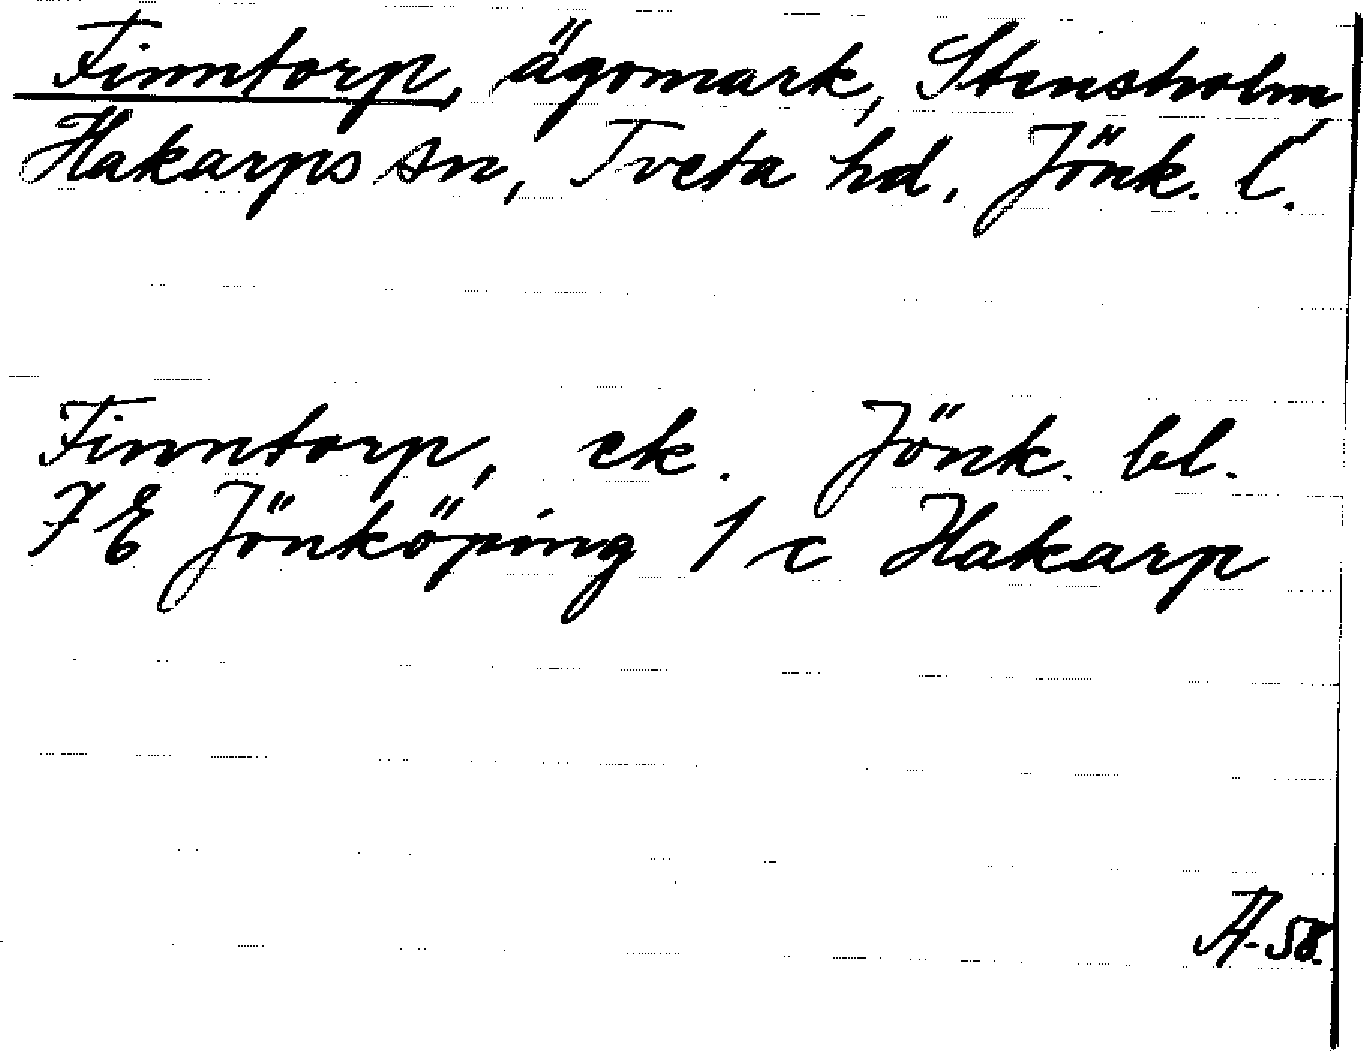 Finntorp, ägomark, Stensholm,
Hakarps sn, Tveta hd, Jönk. l.
Finntorp, ek. Jönk. bl.
7 E Jönköping 1 c Hakarp
A-58.